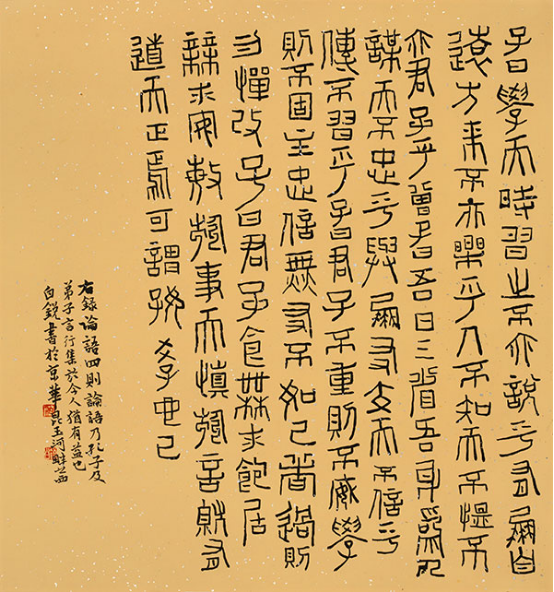 子曰學而時習之不亦說乎有朋自
遠方來不亦樂乎人不知而不慍不
亦君子乎曾子曰吾日三省吾身為人
謀而不忠乎與朋友交而不信乎
傳不習乎子曰君子不重則不威學
則不固主忠信無友不如己者過則
勿憚改子曰君子食無求飽居
無求安敏於事而慎於言就有
道而正焉可謂好學也已
右錄論語四則論語乃孔子及
弟子言行集於今人猶有益也
白銳書於京華昆玉河畔